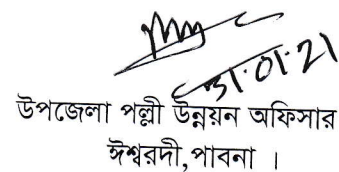 31.01.21
উপজেলা পল্লী উন্নয়ন অফিসার
ঈশ্বরদী,পাবনা ।